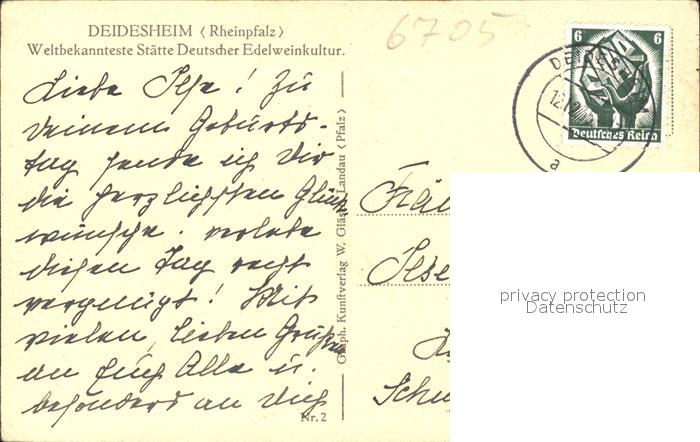 DEIDESHEIM (Rheinpfalz)
Weltbekannteste Stätte Deutscher Edelweinkultur.
6705
6 6
Deutsches Reich
DEIDESHEIM
12.1
a
Liebe Ilse! Zu
Deinem Geburts-
tag sende ich Dir
die herzlichsten Glück
wünsche. verlebe
diesen Tag recht
vergnügt! Mit
vielen, lieben Grüßen
an Euch Alle u.
besonders an Dich
Graph. Kunstverlag W. Gläser Landau (Pfalz)
Nr. 2
Fräu
Ilse
Schu
privacy protection
Datenschutz